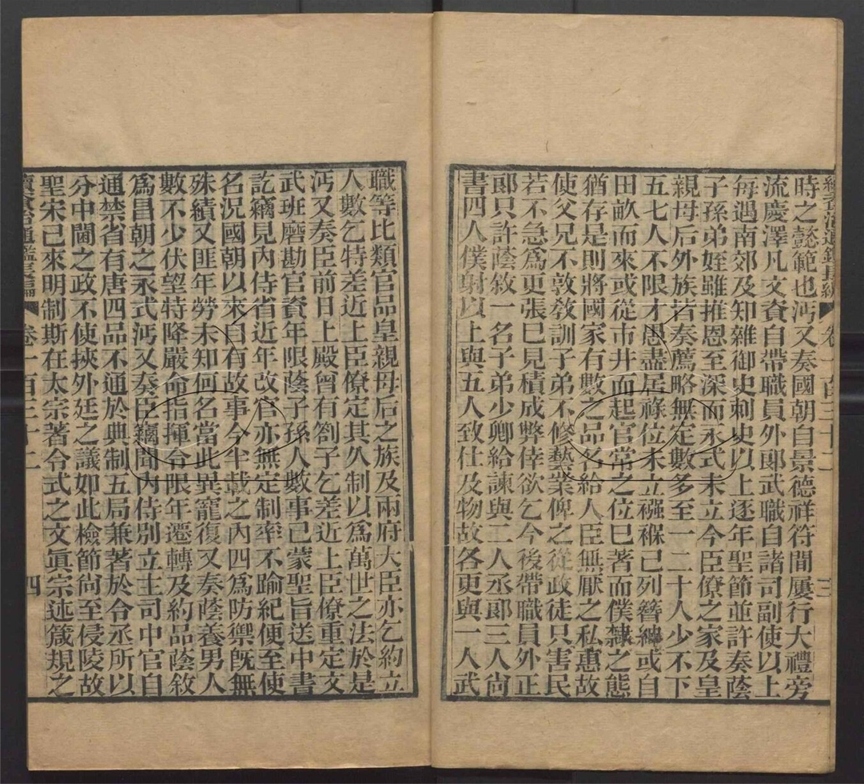 時之懿範也沔又奏國朝自景德祥符間屢行大禮旁
流慶澤凡文資自帶職員外郎武職自諸司副使以上
每遇南郊及知雜御史刺史以上逐年聖節並許奏蔭
子孫弟姪雖推恩至深而永式未立今臣僚之家及皇
親母后外族皆奏薦略無定數多至一二十人少不下
五七人不限才愚盡居祿位未立襁褓已列簪紳或自
田畝而來或從市井而起官常之位已著而僕隸之態
猶存是則將國家有數之品名給人臣無厭之私惠故
使父兄不敦敎訓子弟不修藝業俾之從政徒只害民
若不急爲更張已見積成弊倖欲乞今後帶職員外正
郞只許蔭敘一名子弟少卿給諫與二人丞郞三人尙
書四人僕射以上與五人致仕及物故各更與一人武
三
職等比類官品皇親母后之族及兩府大臣亦乞約立
人數乞特差近上臣僚定其久制以爲萬世之法於是
沔又奏臣前日上殿曾有劄子乞差近上臣僚重定文
武班磨勘官資年限蔭子孫人數事已蒙聖旨送中書
訖竊見內侍省近年改官亦無定制率不踰紀便至使
名況國朝以來自有故事今半載之內四爲防禦旣無
殊績又匪年勞未知何名當此異寵復又奏蔭養男人
數不少伏望特降嚴命指揮合限年遷轉及約品蔭敘
爲昌朝之永式沔又奏臣竊聞內侍別立主司中官自
通禁省有唐四品不通於典制五局兼著於令丞所以
分中閫之政不使挾外廷之議如此檢節尙至侵陵故
聖宋已來明制斯在太宗著令式之文眞宗述箴規之
續資治通鑑長編 卷一百三十二
四